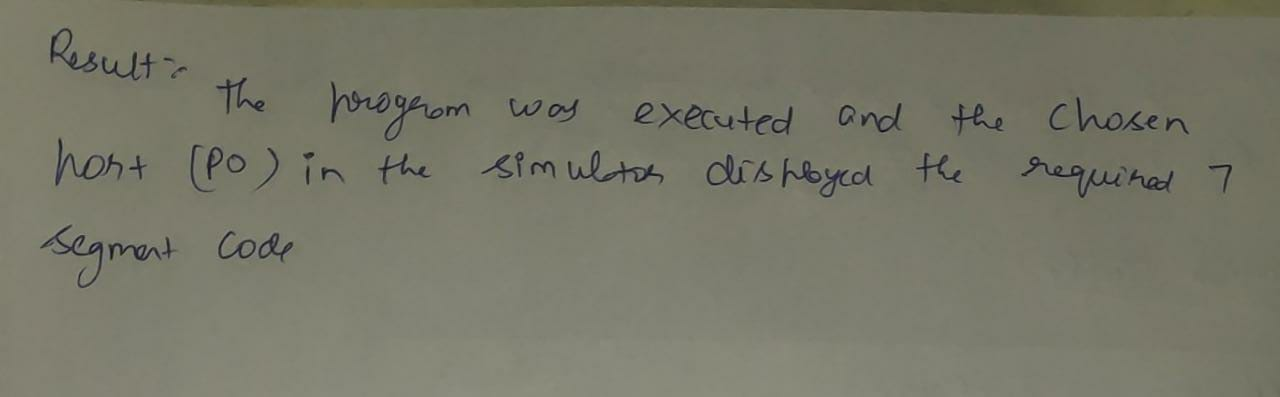 Result :-
The program was executed and the chosen
port (P0) in the simulator displayed the required 7
segment code